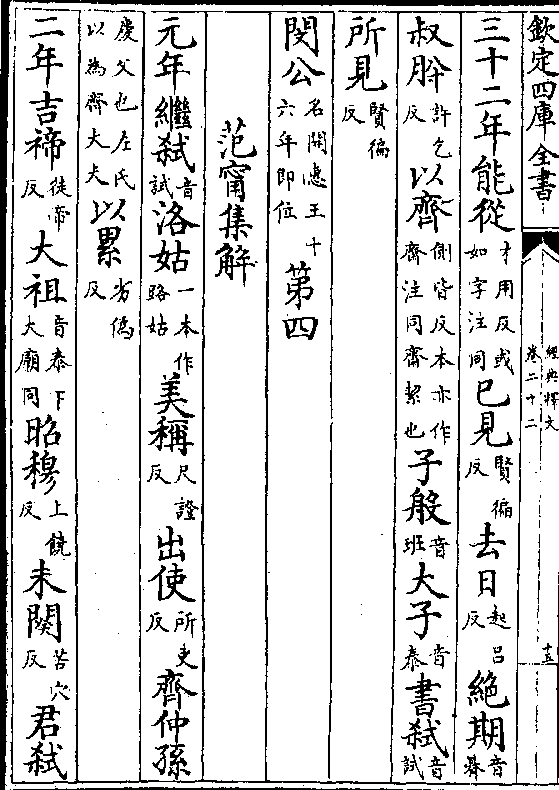 欽定四庫全書
經典釋文
卷二十二
十五
三十二年能從才用反或如字注同已見賢徧反去日起呂反絕期音朞
叔肸許乞反以齊側皆反本亦作齋注同齋絜也子般音班大子音泰書弒音試
所見賢徧反
閔公名開惠王十六年即位第四
范甯集解
元年繼弒音試洛姑一本作路姑美稱尺證反出使所吏反齊仲孫
慶父也左氏以為齊大夫以累劣偽反
二年吉禘徒帝反大祖音泰下大廟同昭穆上饒反未闋苦穴反君弒